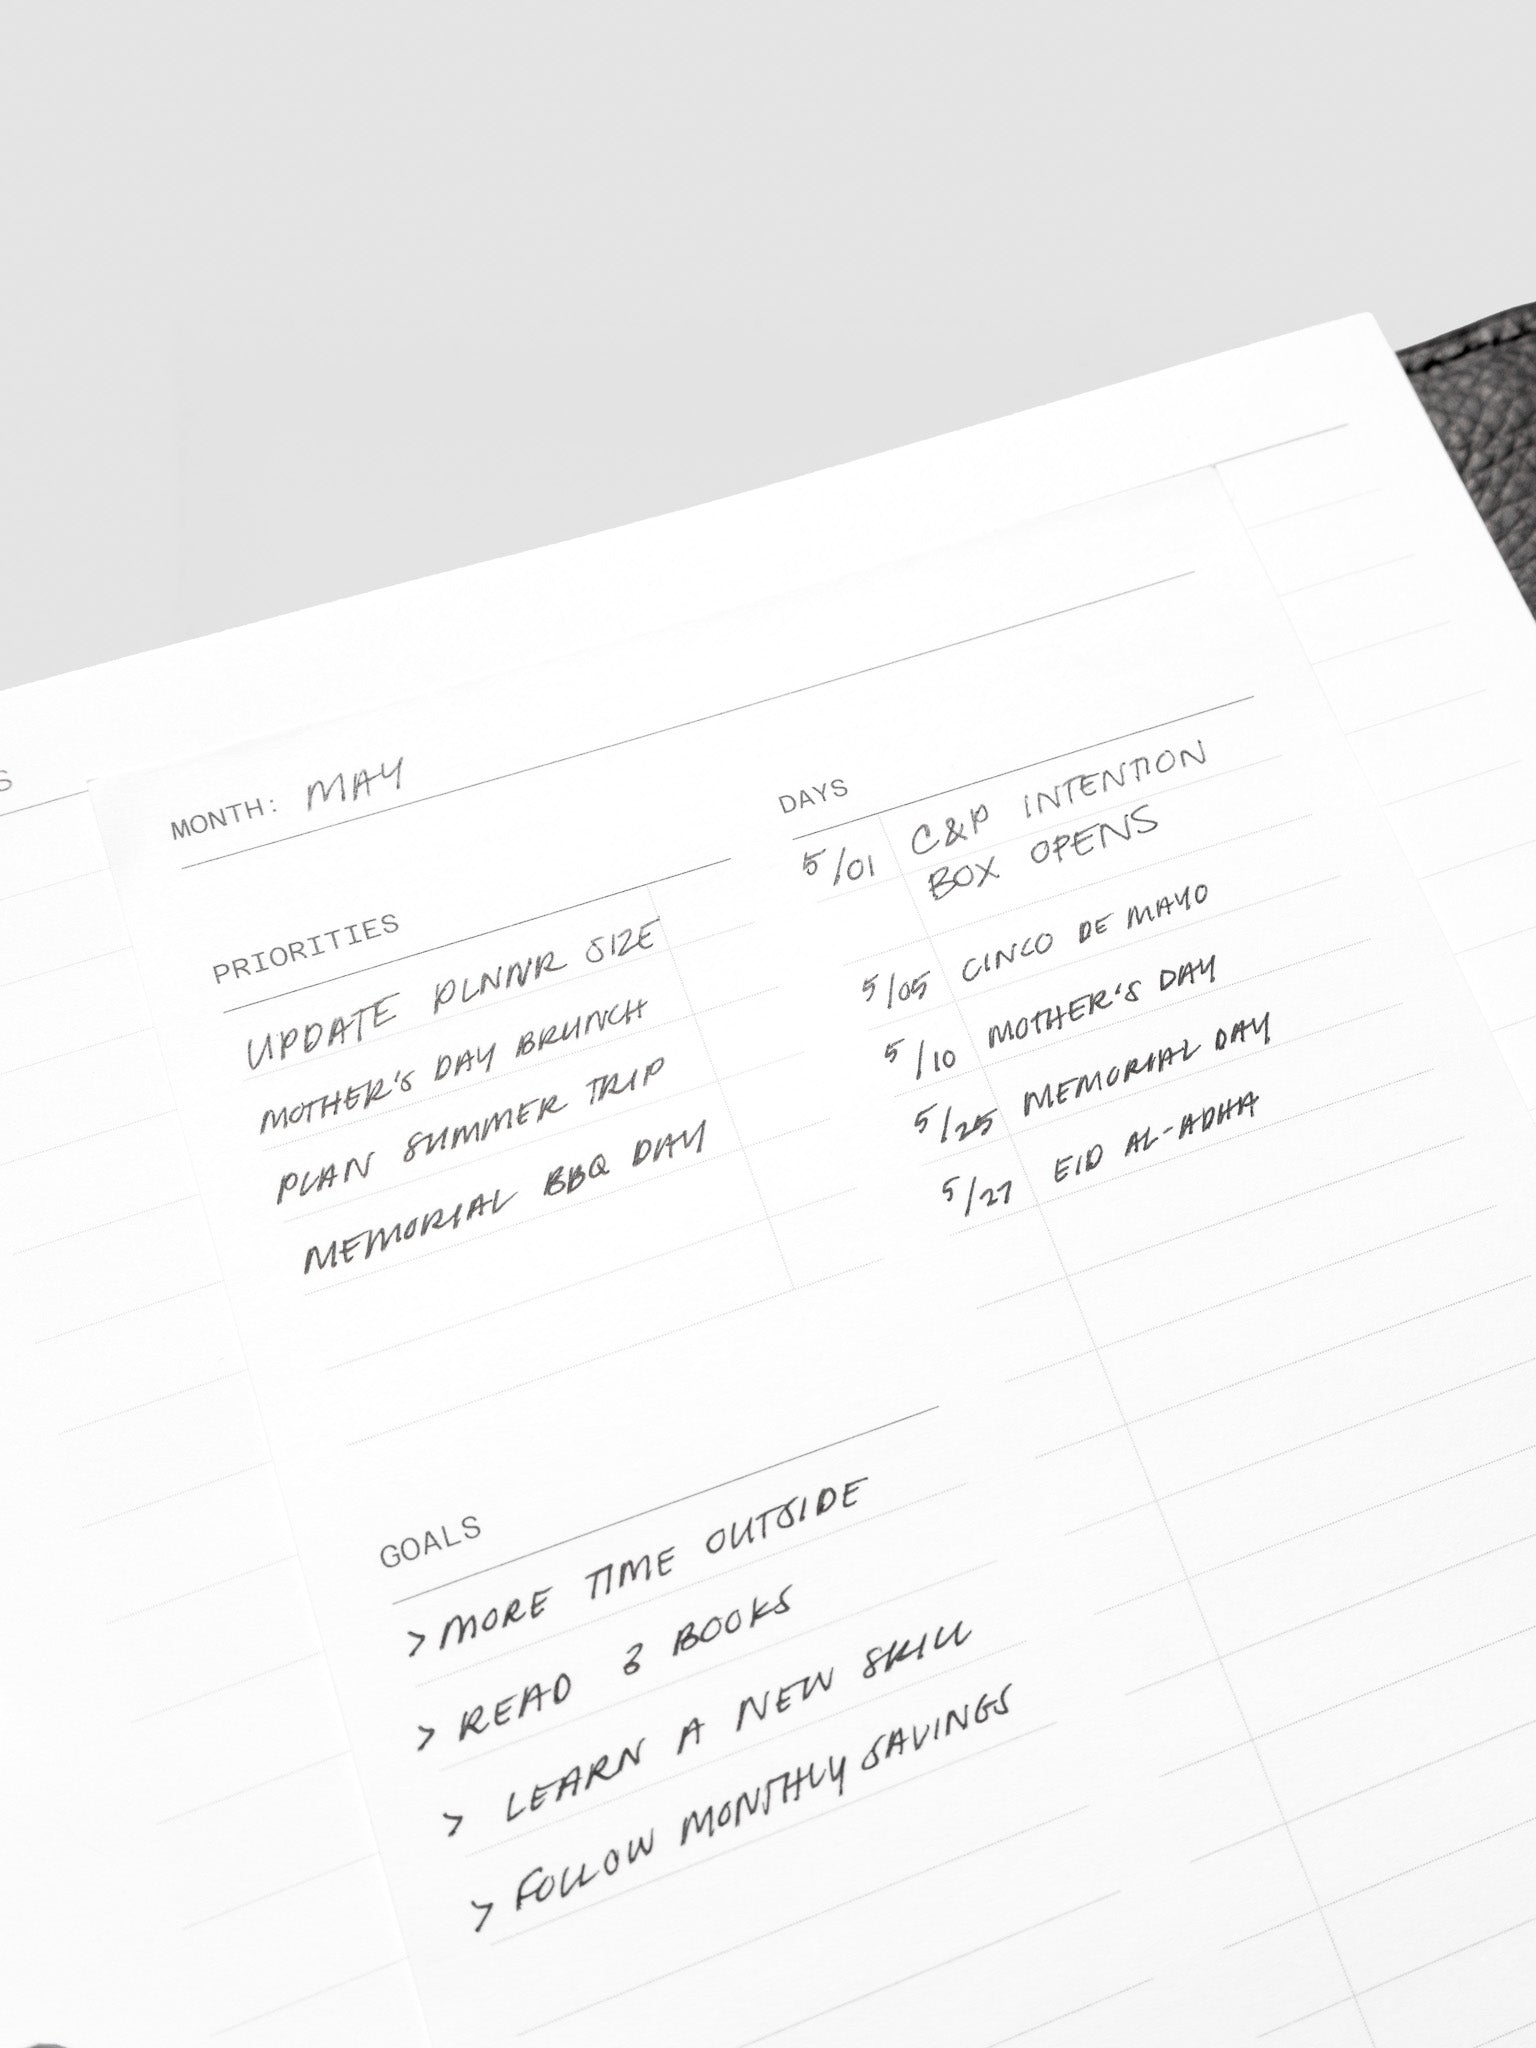 S
MONTH: MAY
PRIORITIES
UPDATE PLNNR SIZE
MOTHER'S DAY BRUNCH
PLAN SUMMER TRIP
MEMORIAL BBQ DAY
GOALS
> MORE TIME OUTSIDE
> READ 3 BOOKS
> LEARN A NEW SKILL
> FOLLOW MONTHLY SAVINGS
DAYS
5/01 C&P INTENTION
BOX OPENS
5/05 CINCO DE MAYO
5/10 MOTHER'S DAY
5/25 MEMORIAL DAY
5/27 EID AL-ADHA